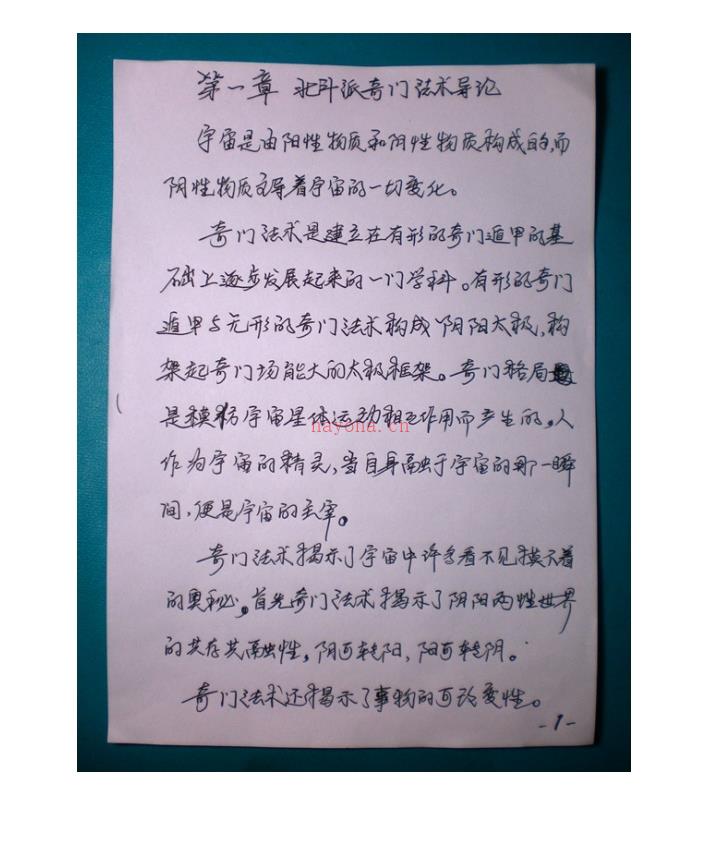 第一章 北斗派奇门法术导论
宇宙是由阳性物质和阴性物质构成的,而
阴性物质主导着宇宙的一切变化。
奇门法术是建立在有形的奇门遁甲的基
础上逐步发展起来的一门学科。有形的奇门
遁甲与无形的奇门法术构成阴阳太极,构
架起奇门场能大的太极框架。奇门格局
是模仿宇宙星体运动相互作用而产生的。人
nayona.cn
作为宇宙的精灵,当自身融于宇宙的那一瞬
间,便是宇宙的主宰。
奇门法术揭示了宇宙中许多看不见摸不着
的奥秘。首先奇门法术揭示了阴阳两性世界
的共存共融性,阴可转阳,阳可转阴。
奇门法术还揭示了事物的可改变性。
-1-